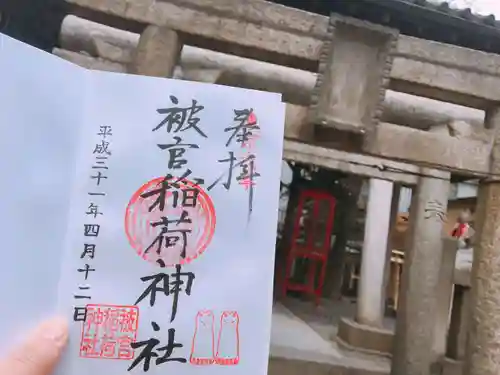 奉拝
被官稲荷神社
平成三十一年四月十二日
被官
稲荷
神社